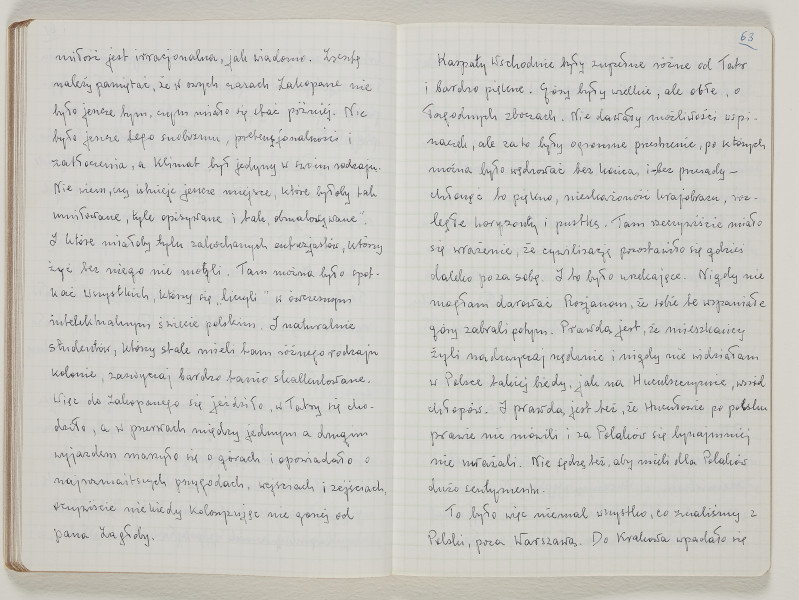 miłość jest irracjonalna, jak wiadomo. Zresztą
należy pamiętać, że w owych czasach Zakopane nie
było jeszcze tym, czym miało się stać później. Nie
było jeszcze tego snobizmu, pretensjonalności i
zatłoczenia, a klimat był jedyny w swoim rodzaju.
Nie wiem, czy istnieje jeszcze miejsce, które byłoby tak
umiłowane, tyle opisywane i tak „obmalowywane".
I które miałoby tylu zakochanych entuzjastów, którzy
żyć bez niego nie mogli. Tam można było spot-
kać wszystkich, którzy się „liczyli" w ówczesnym
intelektualnym świecie polskim. I naturalnie
studentów, którzy stale mieli tam różnego rodzaju
kolonie, zazwyczaj bardzo tanio skalkulowane.
Więc do Zakopanego się jeździło, w Tatry się cho-
dziło, a w przerwach między jednym a drugim
wyjazdem marzyło się o górach i opowiadało o
najrozmaitszych przygodach, wejściach i zejściach,
oczywiście niekiedy koloryzując nie gorzej od
pana Zagłoby.
63
Karpaty Wschodnie były zupełnie różne od Tatr
i bardzo piękne. Góry były wielkie, ale obłe, o
łagodnych zboczach. Nie dawały możliwości wspi-
naczek, ale za to były ogromne przestrzenie, po których
można było wędrować bez końca, i – bez przesady –
chłonąć to piękno, nieskażoność krajobrazu, roz-
ległe horyzonty i pustkę. Tam rzeczywiście miało
się wrażenie, że cywilizację pozostawiło się gdzieś
daleko poza sobą. I to było urzekające. Nigdy nie
mogłam darować Rosjanom, że sobie te wspaniałe
góry zabrali potym. Prawdą jest, że mieszkańcy
żyli nadzwyczaj nędznie i nigdy nie widziałam
w Polsce takiej biedy, jak na Huculszczyźnie, wśród
chłopów. I prawdą jest też, że Huculowie po polsku
prawie nie mówili i za Polaków się bynajmniej
nie uważali. Nie sądzę też, aby mieli dla Polaków
dużo sentymentu.
To było więc niemal wszystko, co znaliśmy z
Polski, poza Warszawą. Do Krakowa wpadało się